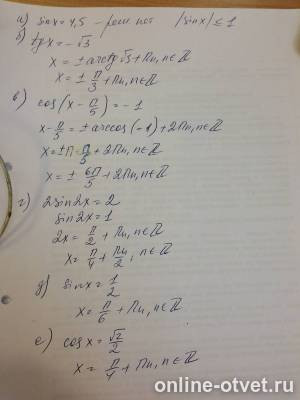 а) sinx = 4,5 - реш нет |sinx| ≤ 1
б) tgx = -√3
x = ± arctg √3 + πn, n∈Z
x = ± π/3 + πn, n∈Z
в) cos(x - π/5) = -1
x - π/5 = ± arccos(-1) + 2πn, n∈Z
x = ± π = π/5 + 2πn, n∈Z
x = ± 6π/5 + 2πn, n∈Z
г) 2sin2x = 2
sin2x = 1
2x = π/2 + πn, n∈Z
x = π/4 + πn/2, n∈Z
д) sinx = 1/2
x = π/6 + πn, n∈Z
е) cosx = √2/2
x = π/4 + πn, n∈Z
online-otvet.ru